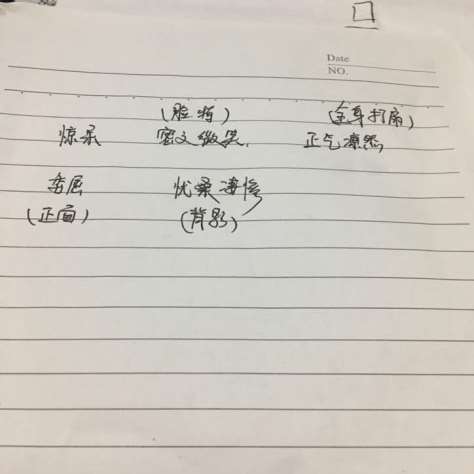 Date
NO.
(脸将) (全身打扇)
惊呆 密文微笑. 正气凛然
委屈 忧桑凄惨
(正面) (背影)